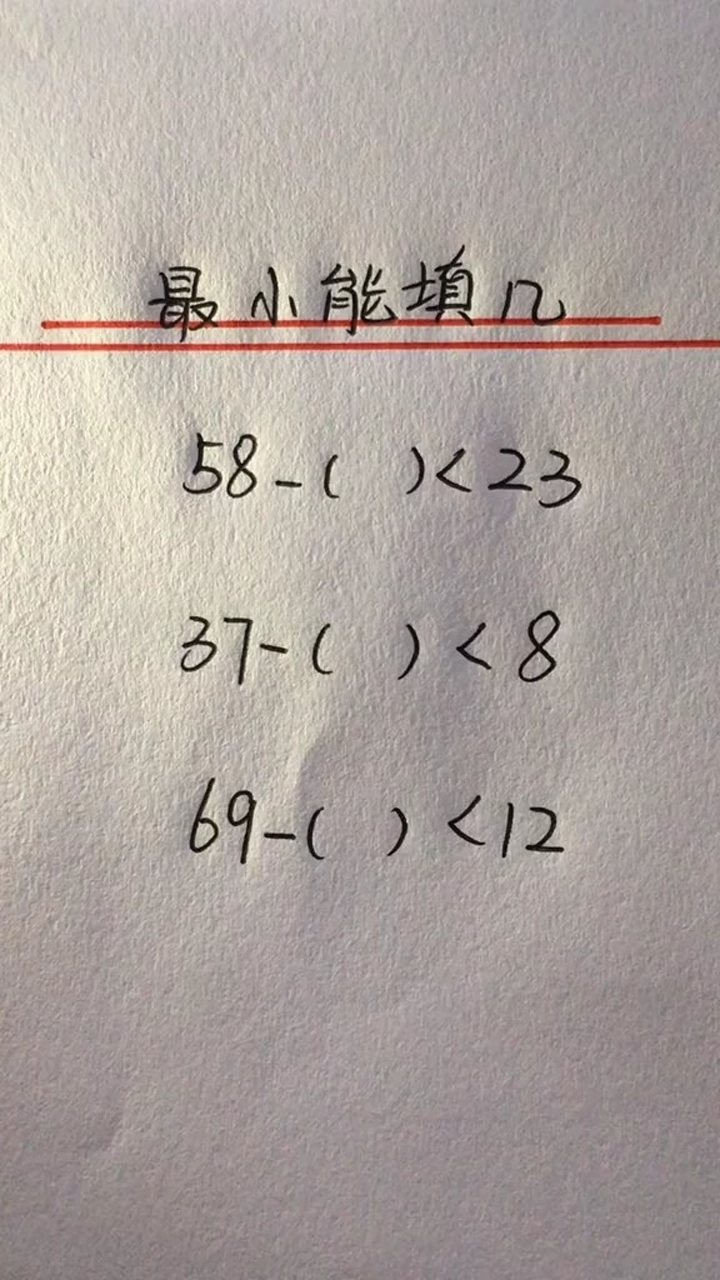 最小能填几
58-( )<23
37-( )<8
69-( )<12